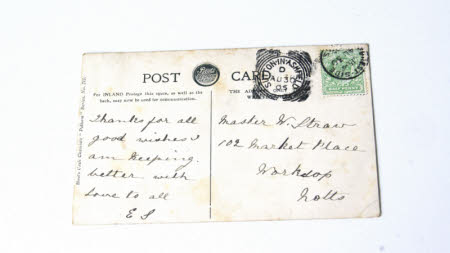 POST CARD
For INLAND Postage this space, as well as the
back, may now be used for communication.
THE AD
W
SUTTON-IN-ASHFIELD
D
AU 30
05
HALF PENNY
Thanks for all
good wishes I
am keeping
better with
love to all
E S
Master W. Straw
102 Market Place
Worksop
Notts